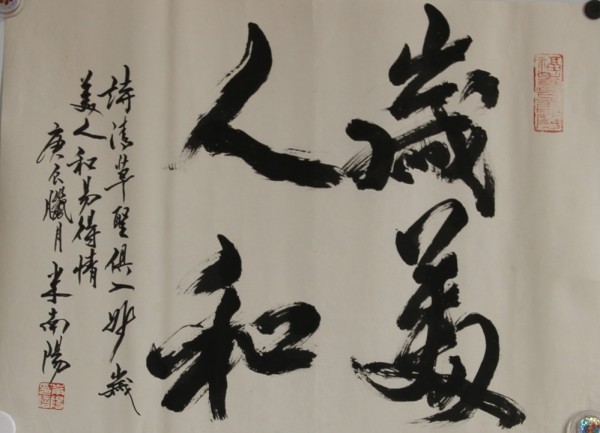 歲美
人和
詩清草聖俱入妙歲
美人和易得情
庚辰臘月米南陽